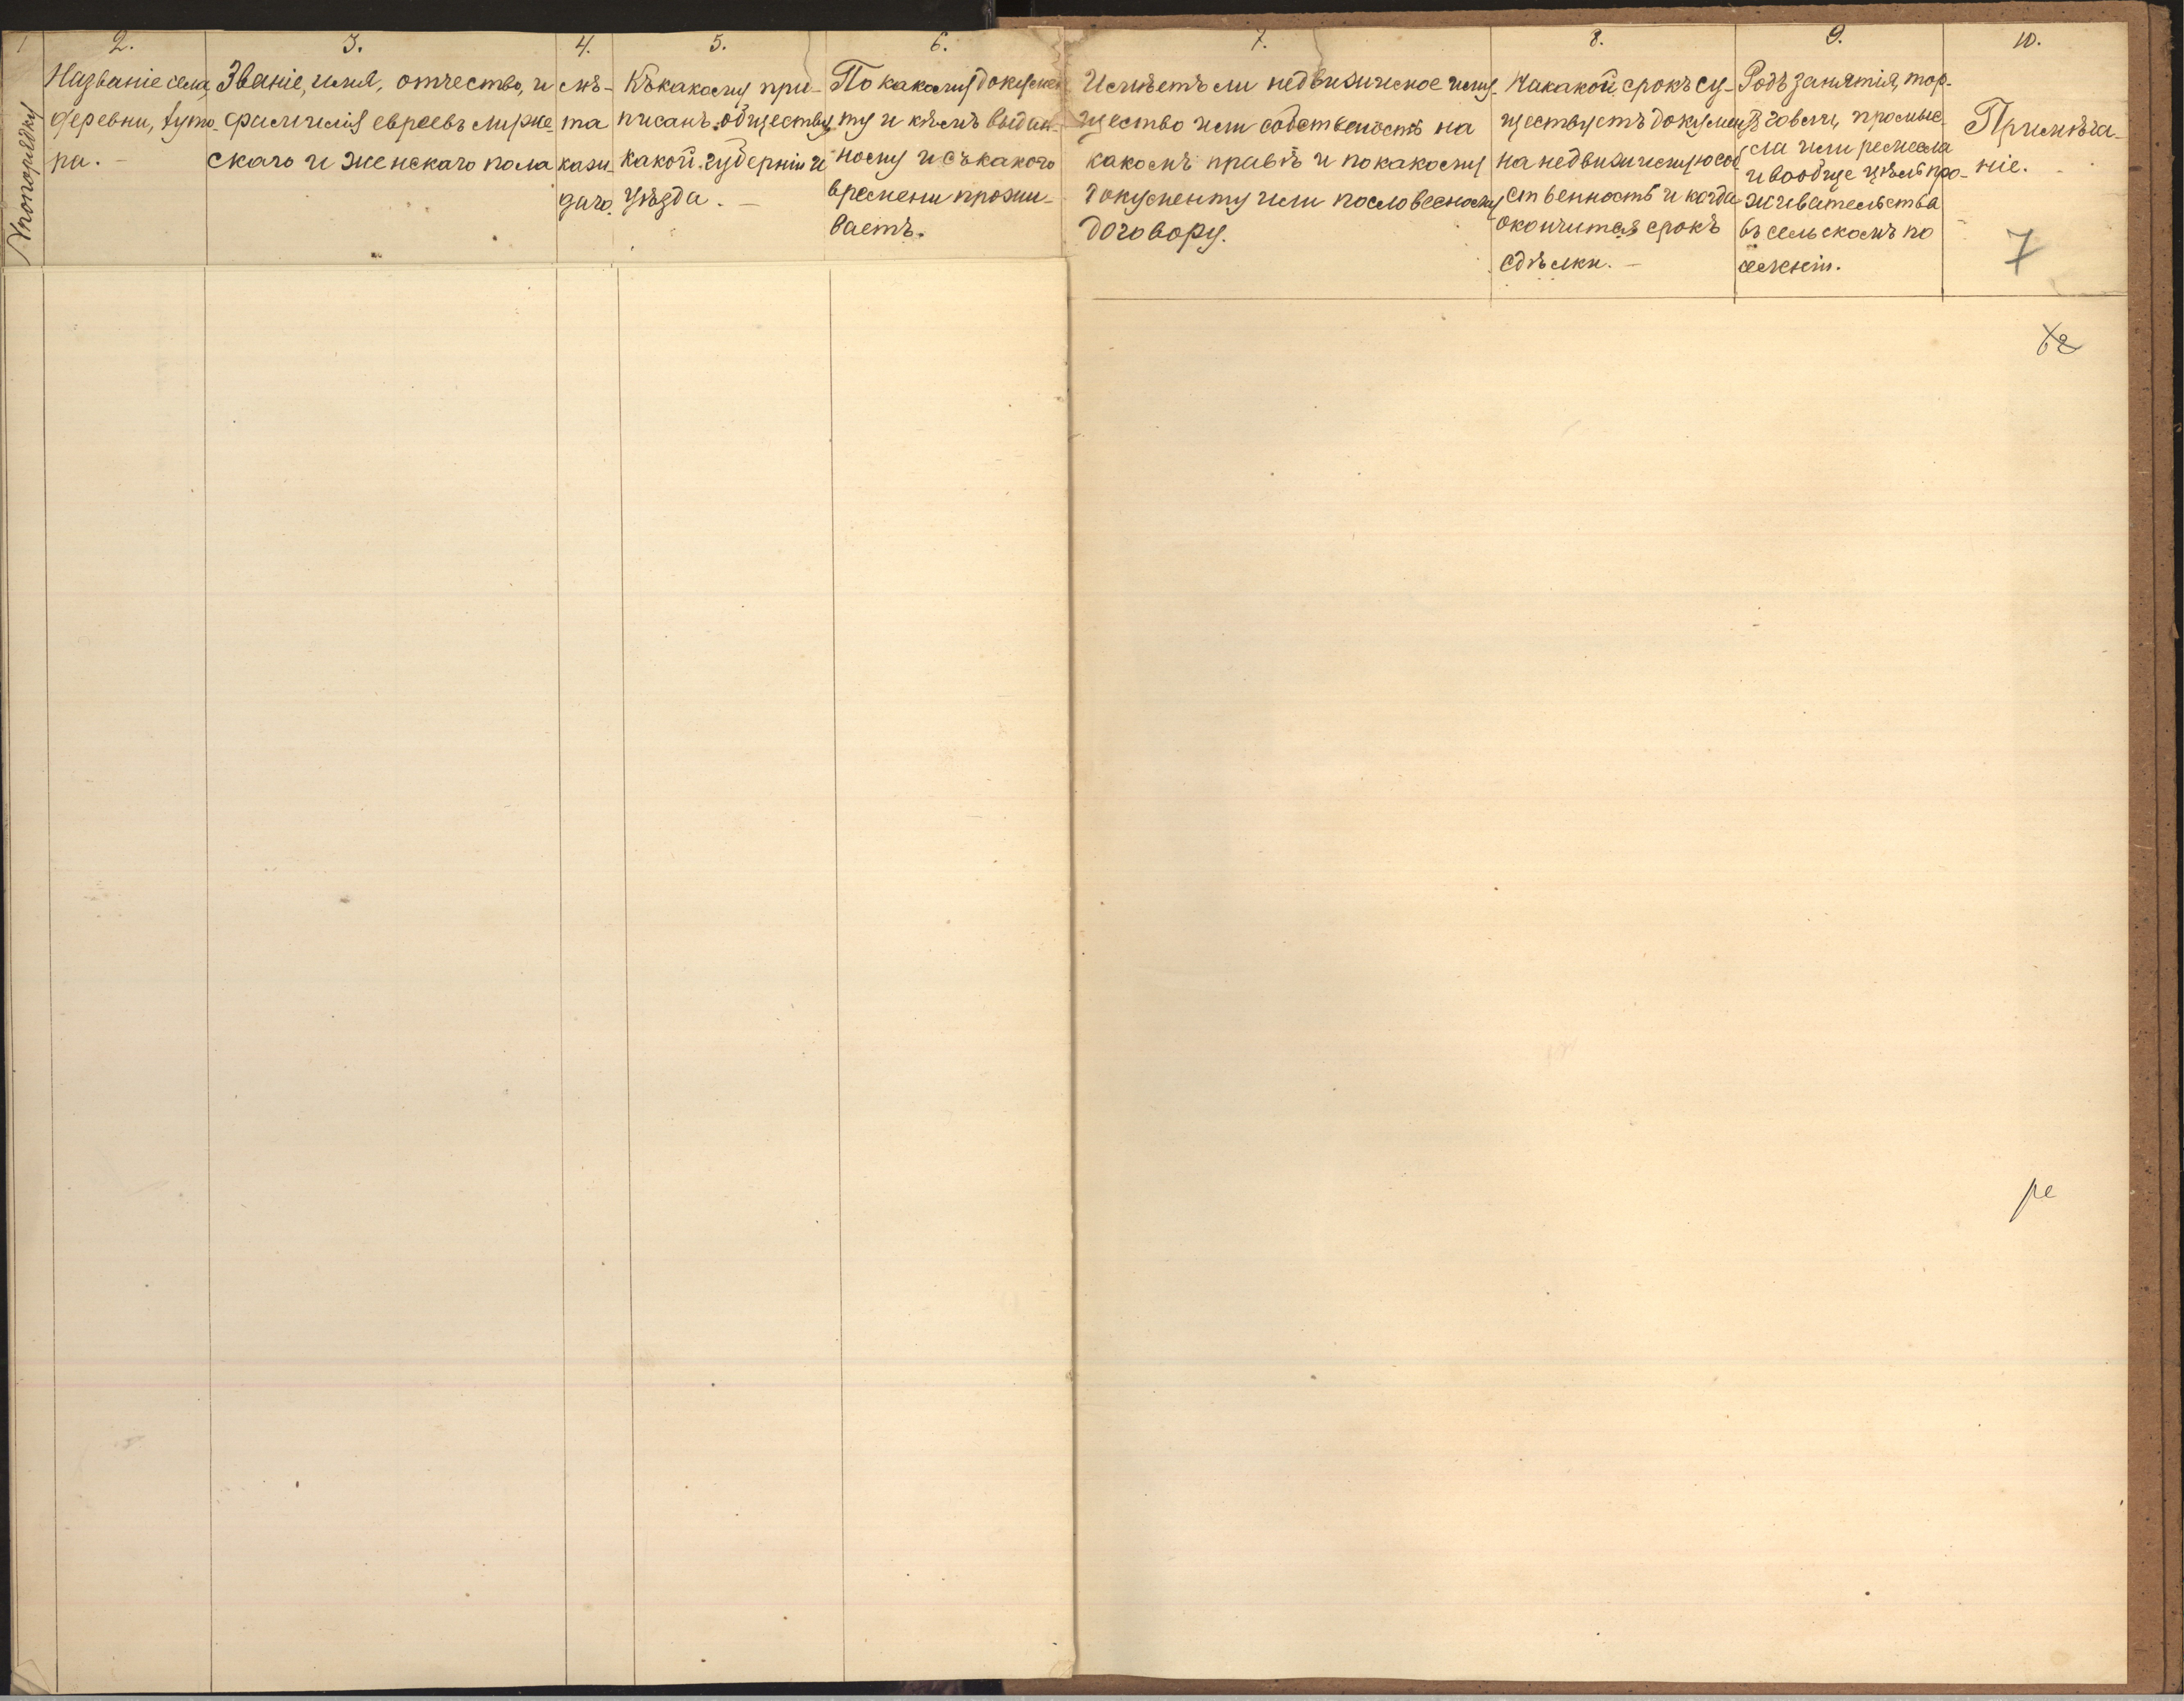 1
№ по порядку
2.
Названіе села,
деревни, хуто-
ра. —
3.
Званіе, имя, отчество, и
фамилія евреевъ мужe-
скаго и женскаго пола
4.
лѣ-
та
каж-
даго.
5.
Къ какому при-
писанъ обществу,
какой губерніи и
уѣзда. —
6.
По какому докумен-
ту и кѣмъ выдан-
ному и съ какого
времени прожи-
ваетъ.
7.
Имѣетъ ли недвижимое иму-
щество или собственость на
какомъ правѣ и по какому
документу или по словесному
договору.
8.
На какой срокъ су-
ществуетъ документъ
на недвижимую соб-
ственность и когда
окончится срокъ
сдѣлки. —
9.
Родъ занятія, тор-
говли, промыс-
ла или ремесла
и вообще цѣль про-
живательства
въ сельскомъ по
селеніи.
10.
Примѣча-
ніе.
7